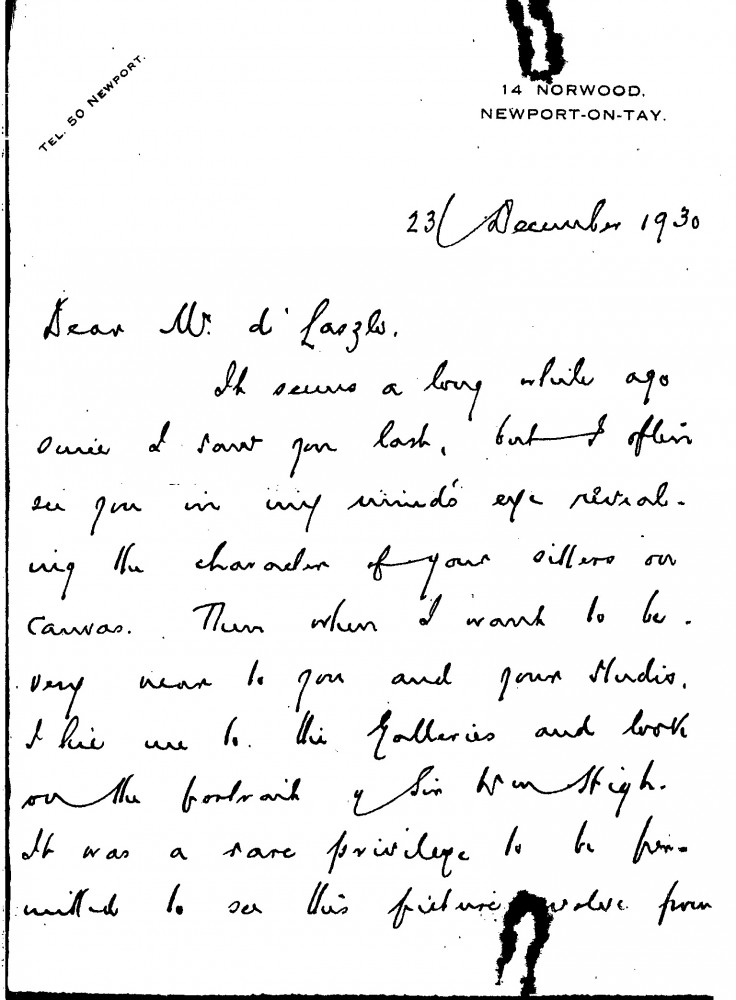 TEL. 50 NEWPORT.
14 NORWOOD,
NEWPORT-ON-TAY.
23/ December 1930
Dear Mr. d' Laszlo.
It seems a long while ago
since I saw you last, but I often
see you in my mind's eye reveal-
ing the character of your sitters on
canvas. Then when I want to be
very near to you and your studio,
I hie me to the Galleries and look
on the portrait of Sir Wm High.
It was a rare privilege to be per-
mitted to see this picture evolve from